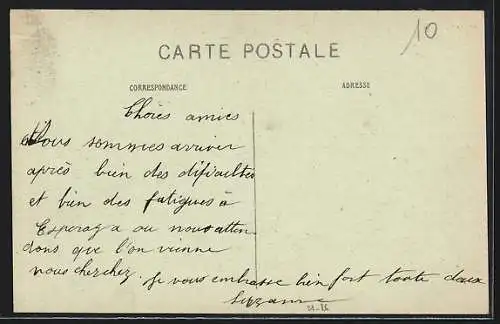 10
CARTE POSTALE
CORRESPONDANCE
ADRESSE
Chères amies
Nous sommes arriver
après bien des dificultes
et bien des fatigues à
Esperaza ou nous atten
dons que l'on vienne
nous cherchez. Je vous embrasse bien fort toute deux
Suzanne